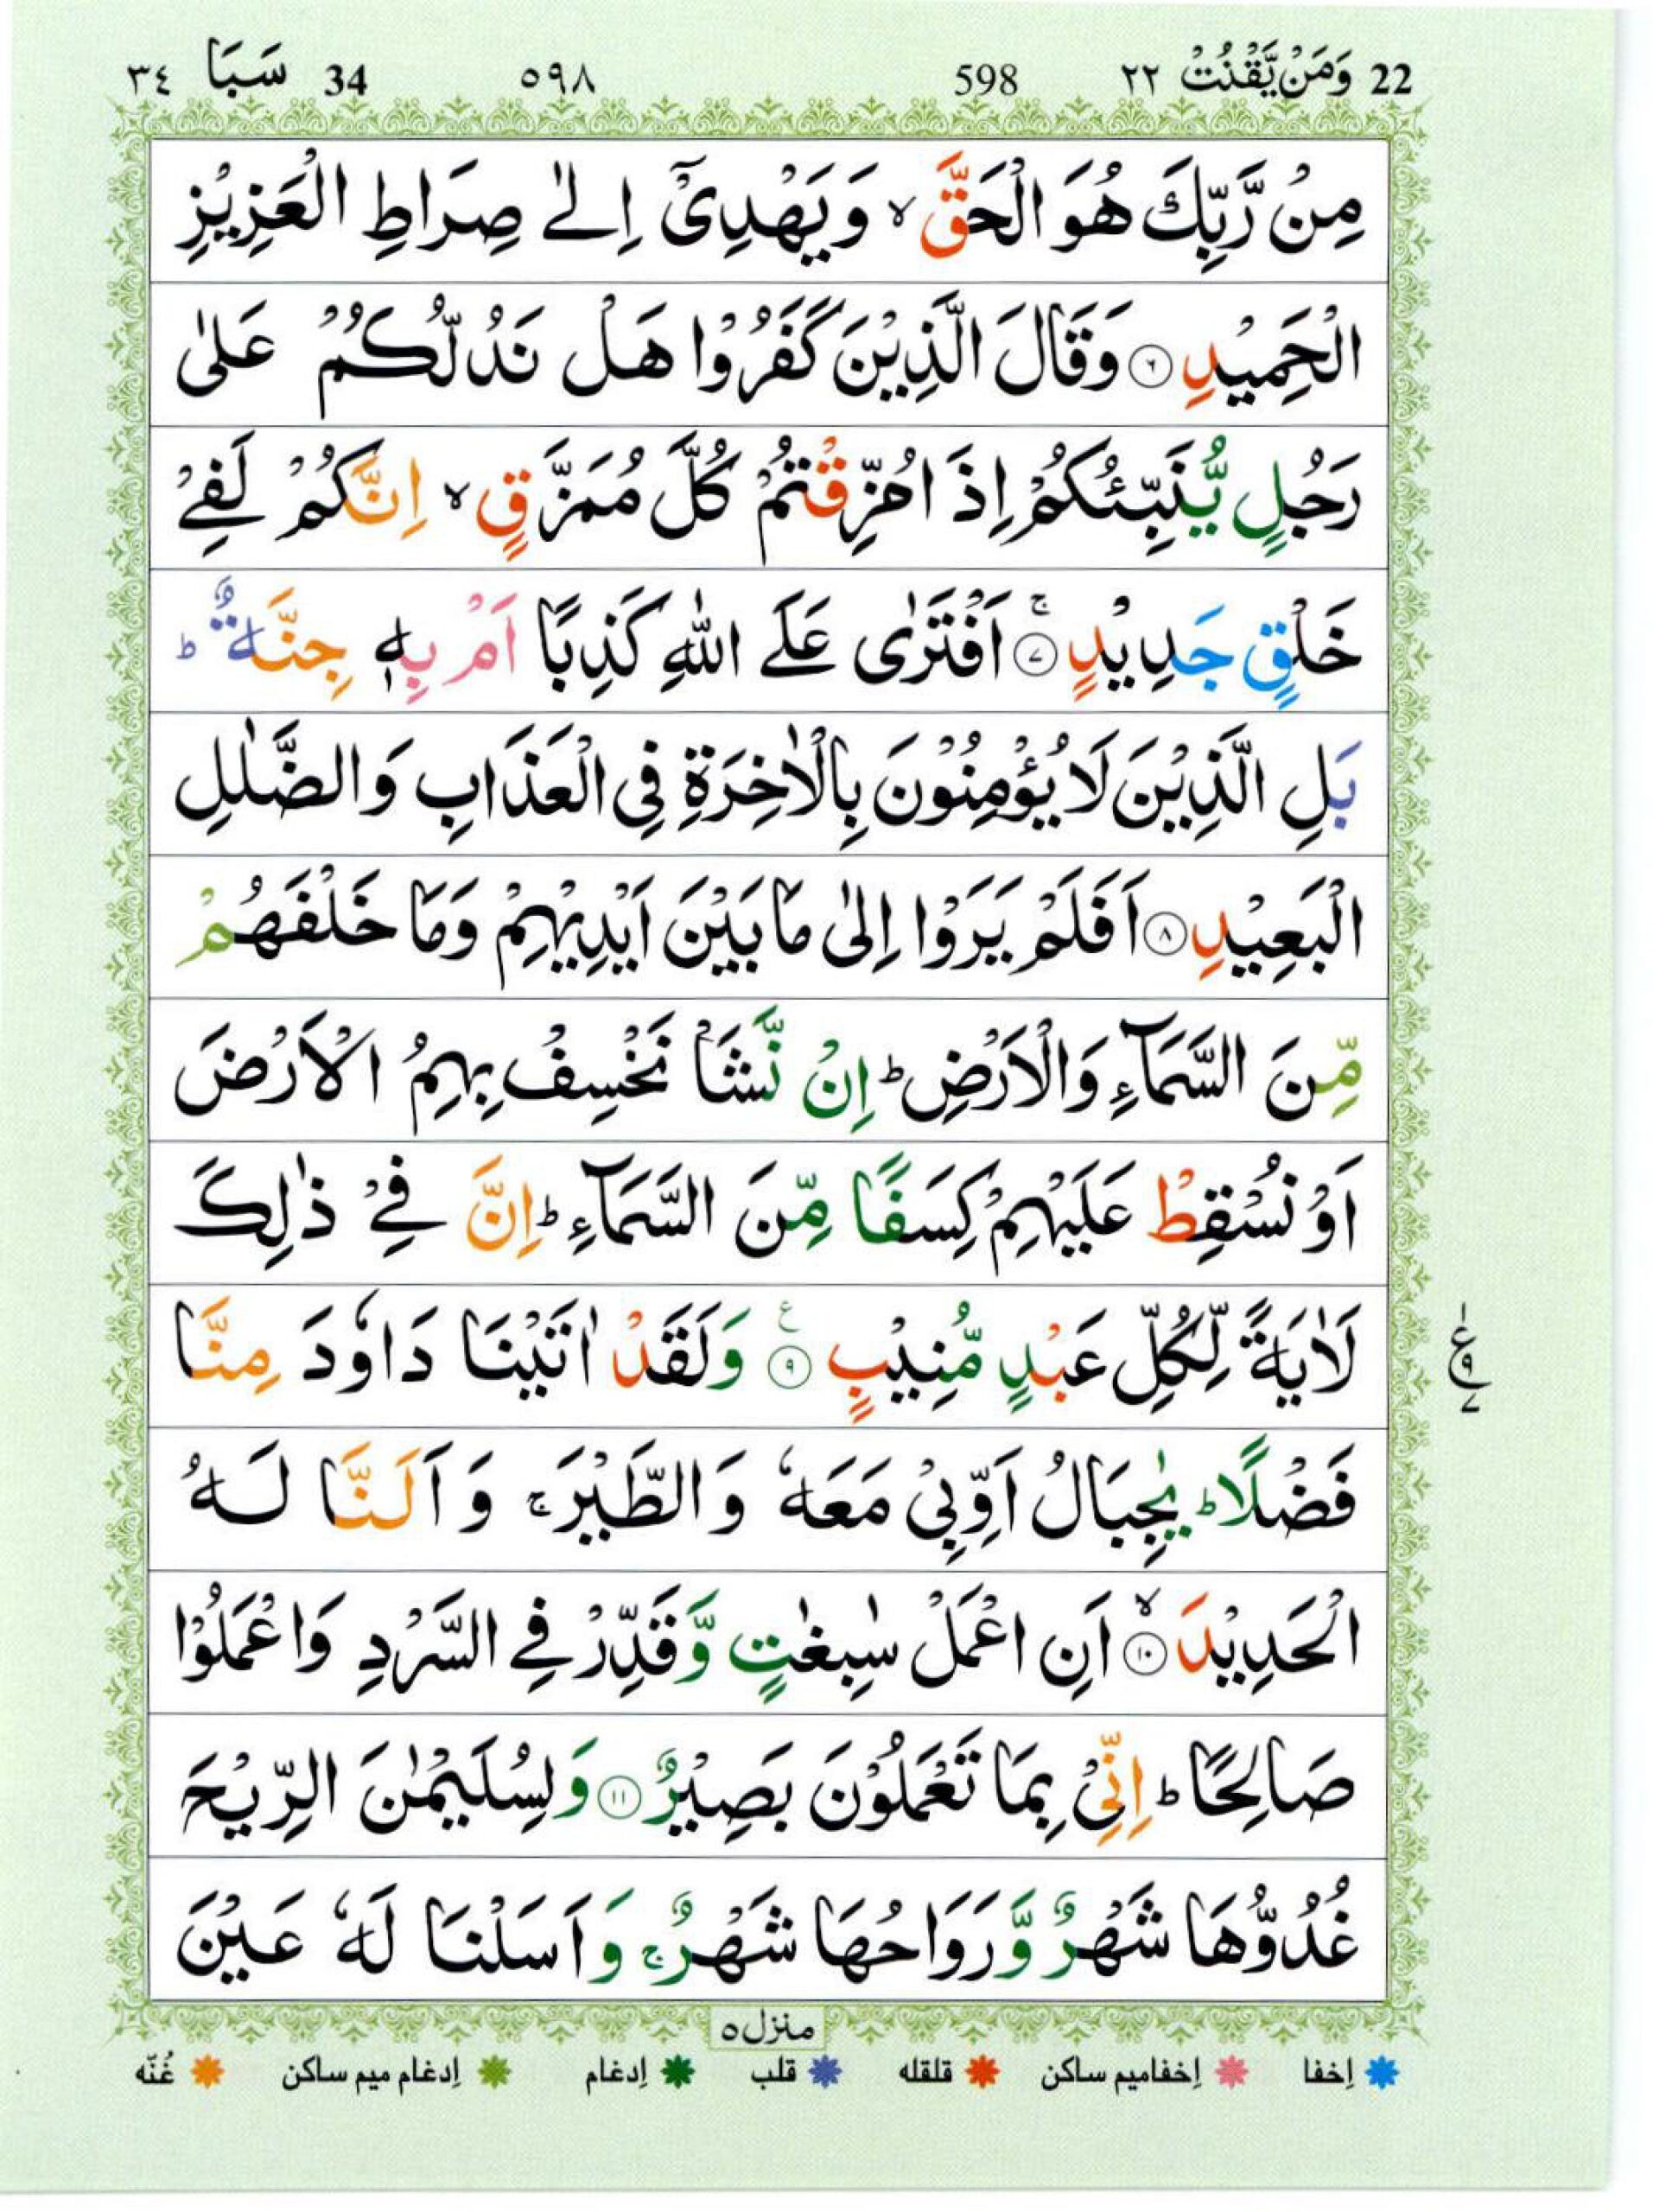 22 وَمَنْ يَّقْنُتْ ٢٢ 598 ٥٩٨ 34 سَبَا ٣٤
مِنْ رَّبِّكَ هُوَ الْحَقَّ ۙ وَيَهْدِىْٓ اِلٰى صِرَاطِ الْعَزِيْزِ
الْحَمِيْدِ ۝٦ وَقَالَ الَّذِيْنَ كَفَرُوْا هَلْ نَدُلُّكُمْ عَلٰى
رَجُلٍ يُّنَبِّئُكُمْ اِذَا مُزِّقْتُمْ كُلَّ مُمَزَّقٍ ۙ اِنَّكُمْ لَفِىْ
خَلْقٍ جَدِيْدٍ ۝٧ۚ اَفْتَرٰى عَلَى اللّٰهِ كَذِبًا اَمْ بِهٖ جِنَّةٌ ؕ
بَلِ الَّذِيْنَ لَا يُؤْمِنُوْنَ بِالْاٰخِرَةِ فِى الْعَذَابِ وَالضَّلٰلِ
الْبَعِيْدِ ۝٨ اَفَلَمْ يَرَوْا اِلٰى مَا بَيْنَ اَيْدِيْهِمْ وَمَا خَلْفَهُمْ
مِّنَ السَّمَآءِ وَالْاَرْضِ ؕ اِنْ نَّشَاْ نَخْسِفْ بِهِمُ الْاَرْضَ
اَوْ نُسْقِطْ عَلَيْهِمْ كِسَفًا مِّنَ السَّمَآءِ ؕ اِنَّ فِىْ ذٰلِكَ
لَاٰيَةً لِّكُلِّ عَبْدٍ مُّنِيْبٍ ۝٩ ع وَلَقَدْ اٰتَيْنَا دَاوٗدَ مِنَّا
ع ٩
فَضْلًا ؕ يٰجِبَالُ اَوِّبِىْ مَعَهٗ وَالطَّيْرَ ۚ وَاَلَنَّا لَهُ
الْحَدِيْدَ ۝١٠ۙ اَنِ اعْمَلْ سٰبِغٰتٍ وَّقَدِّرْ فِى السَّرْدِ وَاعْمَلُوْا
صَالِحًا ؕ اِنِّىْ بِمَا تَعْمَلُوْنَ بَصِيْرٌ ۝١١ وَلِسُلَيْمٰنَ الرِّيْحَ
غُدُوُّهَا شَهْرٌ وَّرَوَاحُهَا شَهْرٌ ۚ وَاَسَلْنَا لَهٗ عَيْنَ
منزل ٥
اِخفا اِخفامیم ساکن قلقله قلب اِدغام اِدغام میم ساکن غُنّه